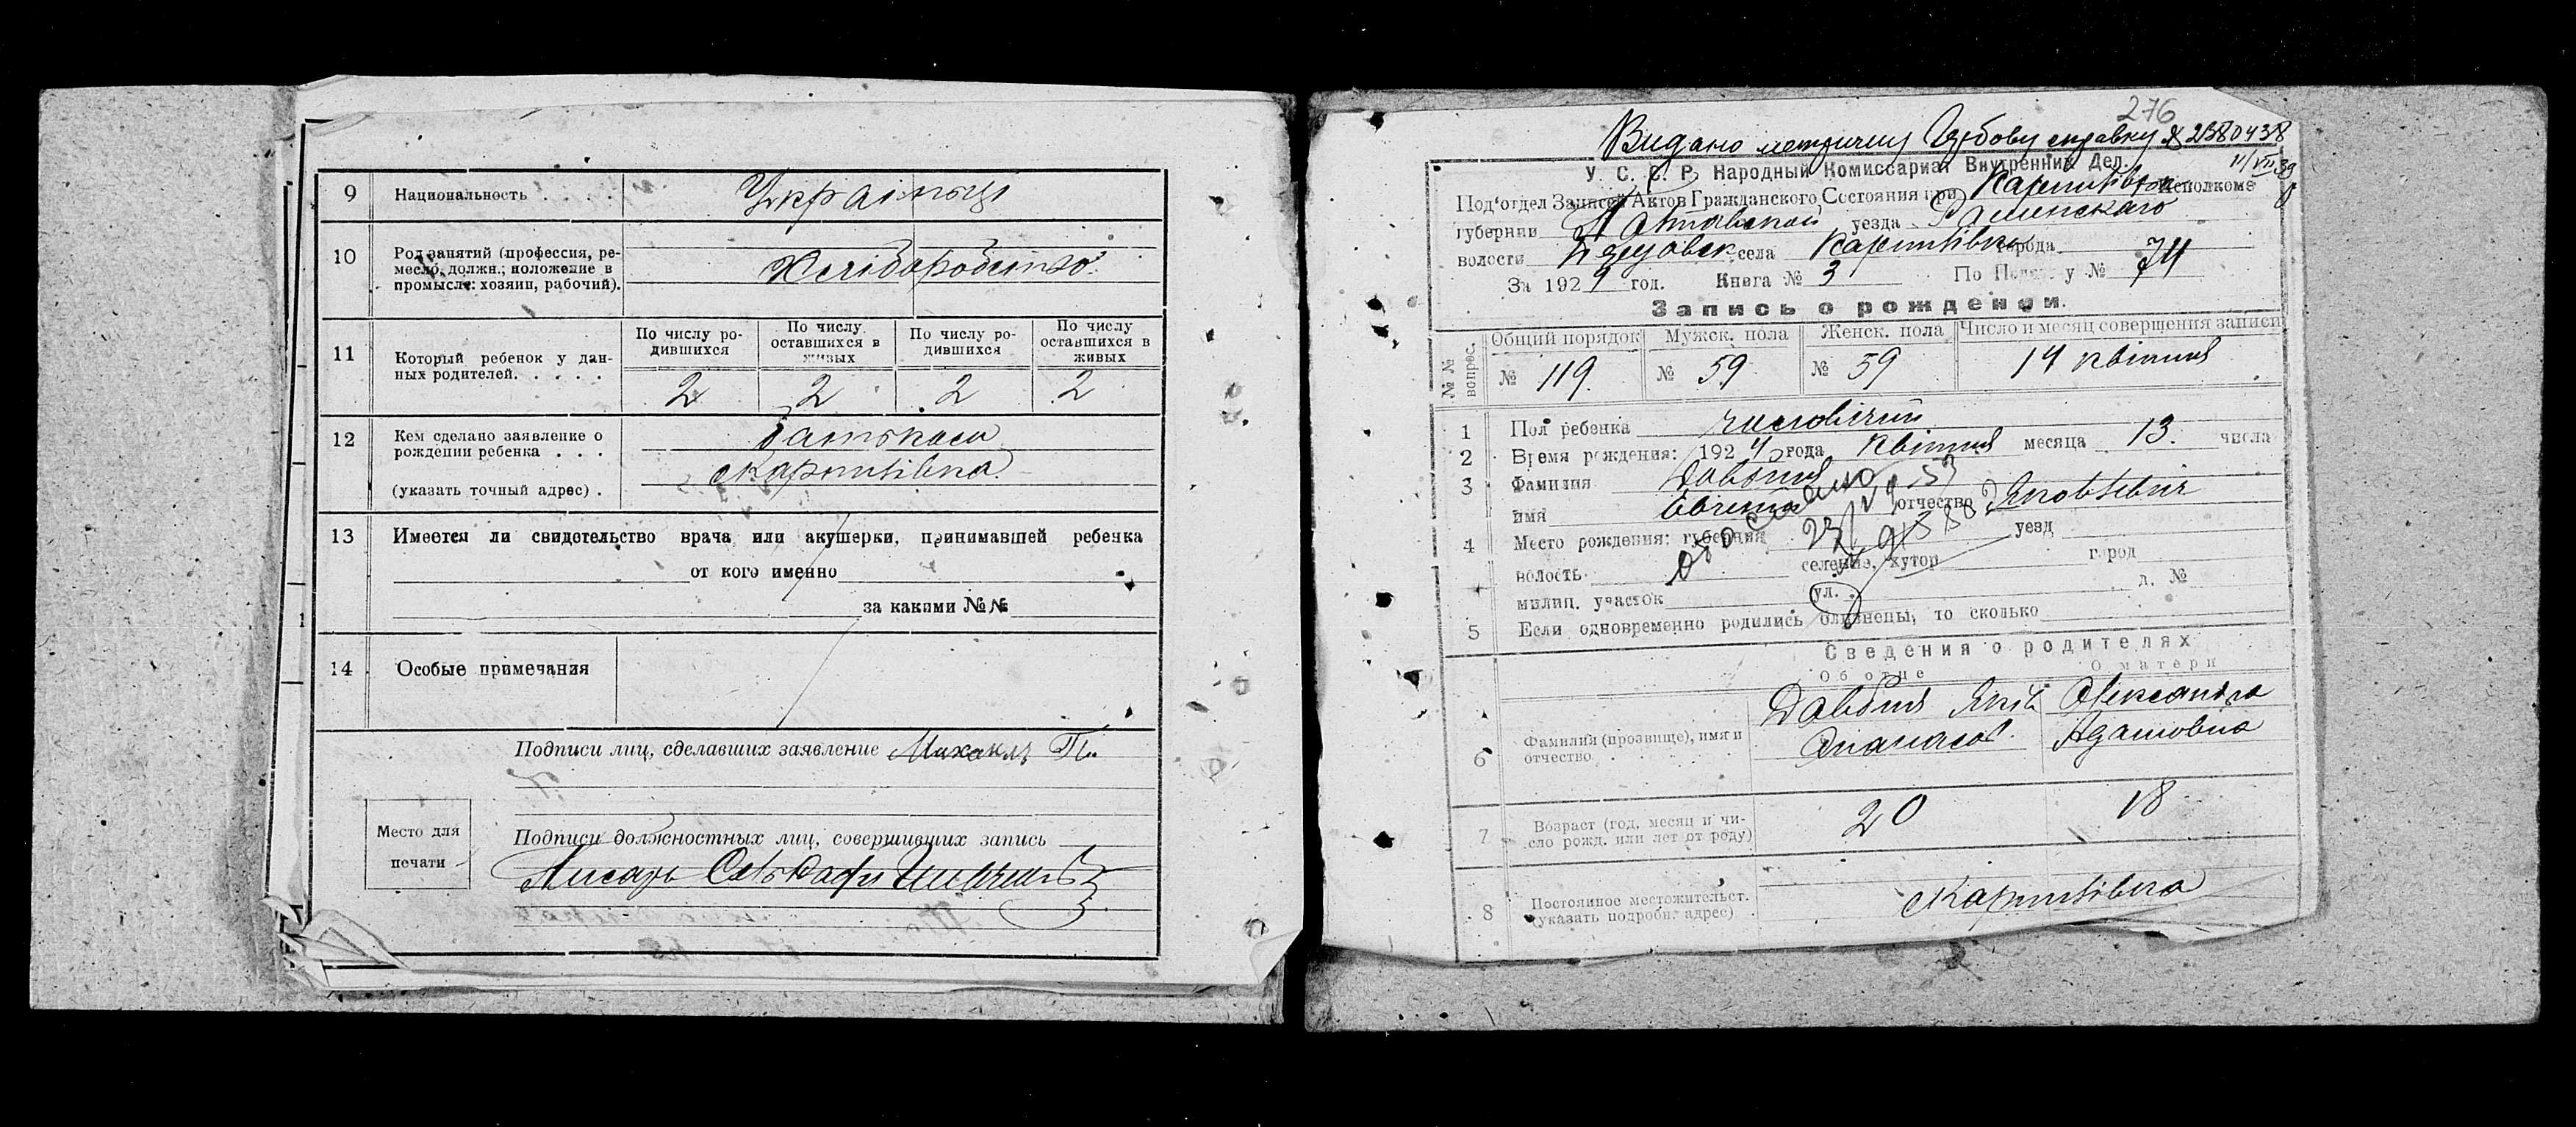 9 Национальность . . . . . Українці
10 Род занятий (профессия, ре-
месло, должн.; положение в
промысле: хозяин, рабочий). Хліборобство.
11 Который ребенок у дан-
ных родителей. . . . .
По числу ро-
дившихся
По числу
оставшихся в
живых
По числу ро-
дившихся
По числу
оставшихся в
живых
2 2 2 2
12 Кем сделано заявление о
рождении ребенка . . . батьком
(указать точный адрес) . Карпилівка.
13 Имеется ли свидетельство врача или акушерки, принимавшей ребенка
от кого именно
за какими №№
14 Особые примечания
Подписи лиц, сделавших заявление
Место для
печати
Подписи должностных лиц, совершивших запись
Писарь
276
Видано справку № 2380438
11/VII 39
У. С. С. Р. Народный Комиссариат Внутренних Дел.
Под'отдел Записей Актов Гражданского Состояния при Исполкоме
губернии Полтавской уезда
волости села Карпилівки города
За 192 год. Книга № 3 По № 74
Запись о рождении.
№ № вопрос. Общий порядок Мужск. пола Женск. пола Число и месяц совершения записи
№ 119. № 59 № 59 14 квітня
1 Пол ребенка чоловічий
2 Время рождения: 1924 года Квітня месяца 13. числа
3 Фамилия
имя отчество Яковлевич
4 Место рождения: губерния уезд
волость селение, хутор город
милиц. участок ул. д. №
5 Если одновременно родились близнецы, то сколько
Сведения о родителях
Об отце О матери
6 Фамилия (прозвище), имя и
отчество. Яків Опанасов. Олександра Адамовна
7 Возраст (год, месяц и чи-
сло рожд. или лет от роду) 20 18
8 Постоянное местожительст.
(указать подробн. адрес) . Карпилівка